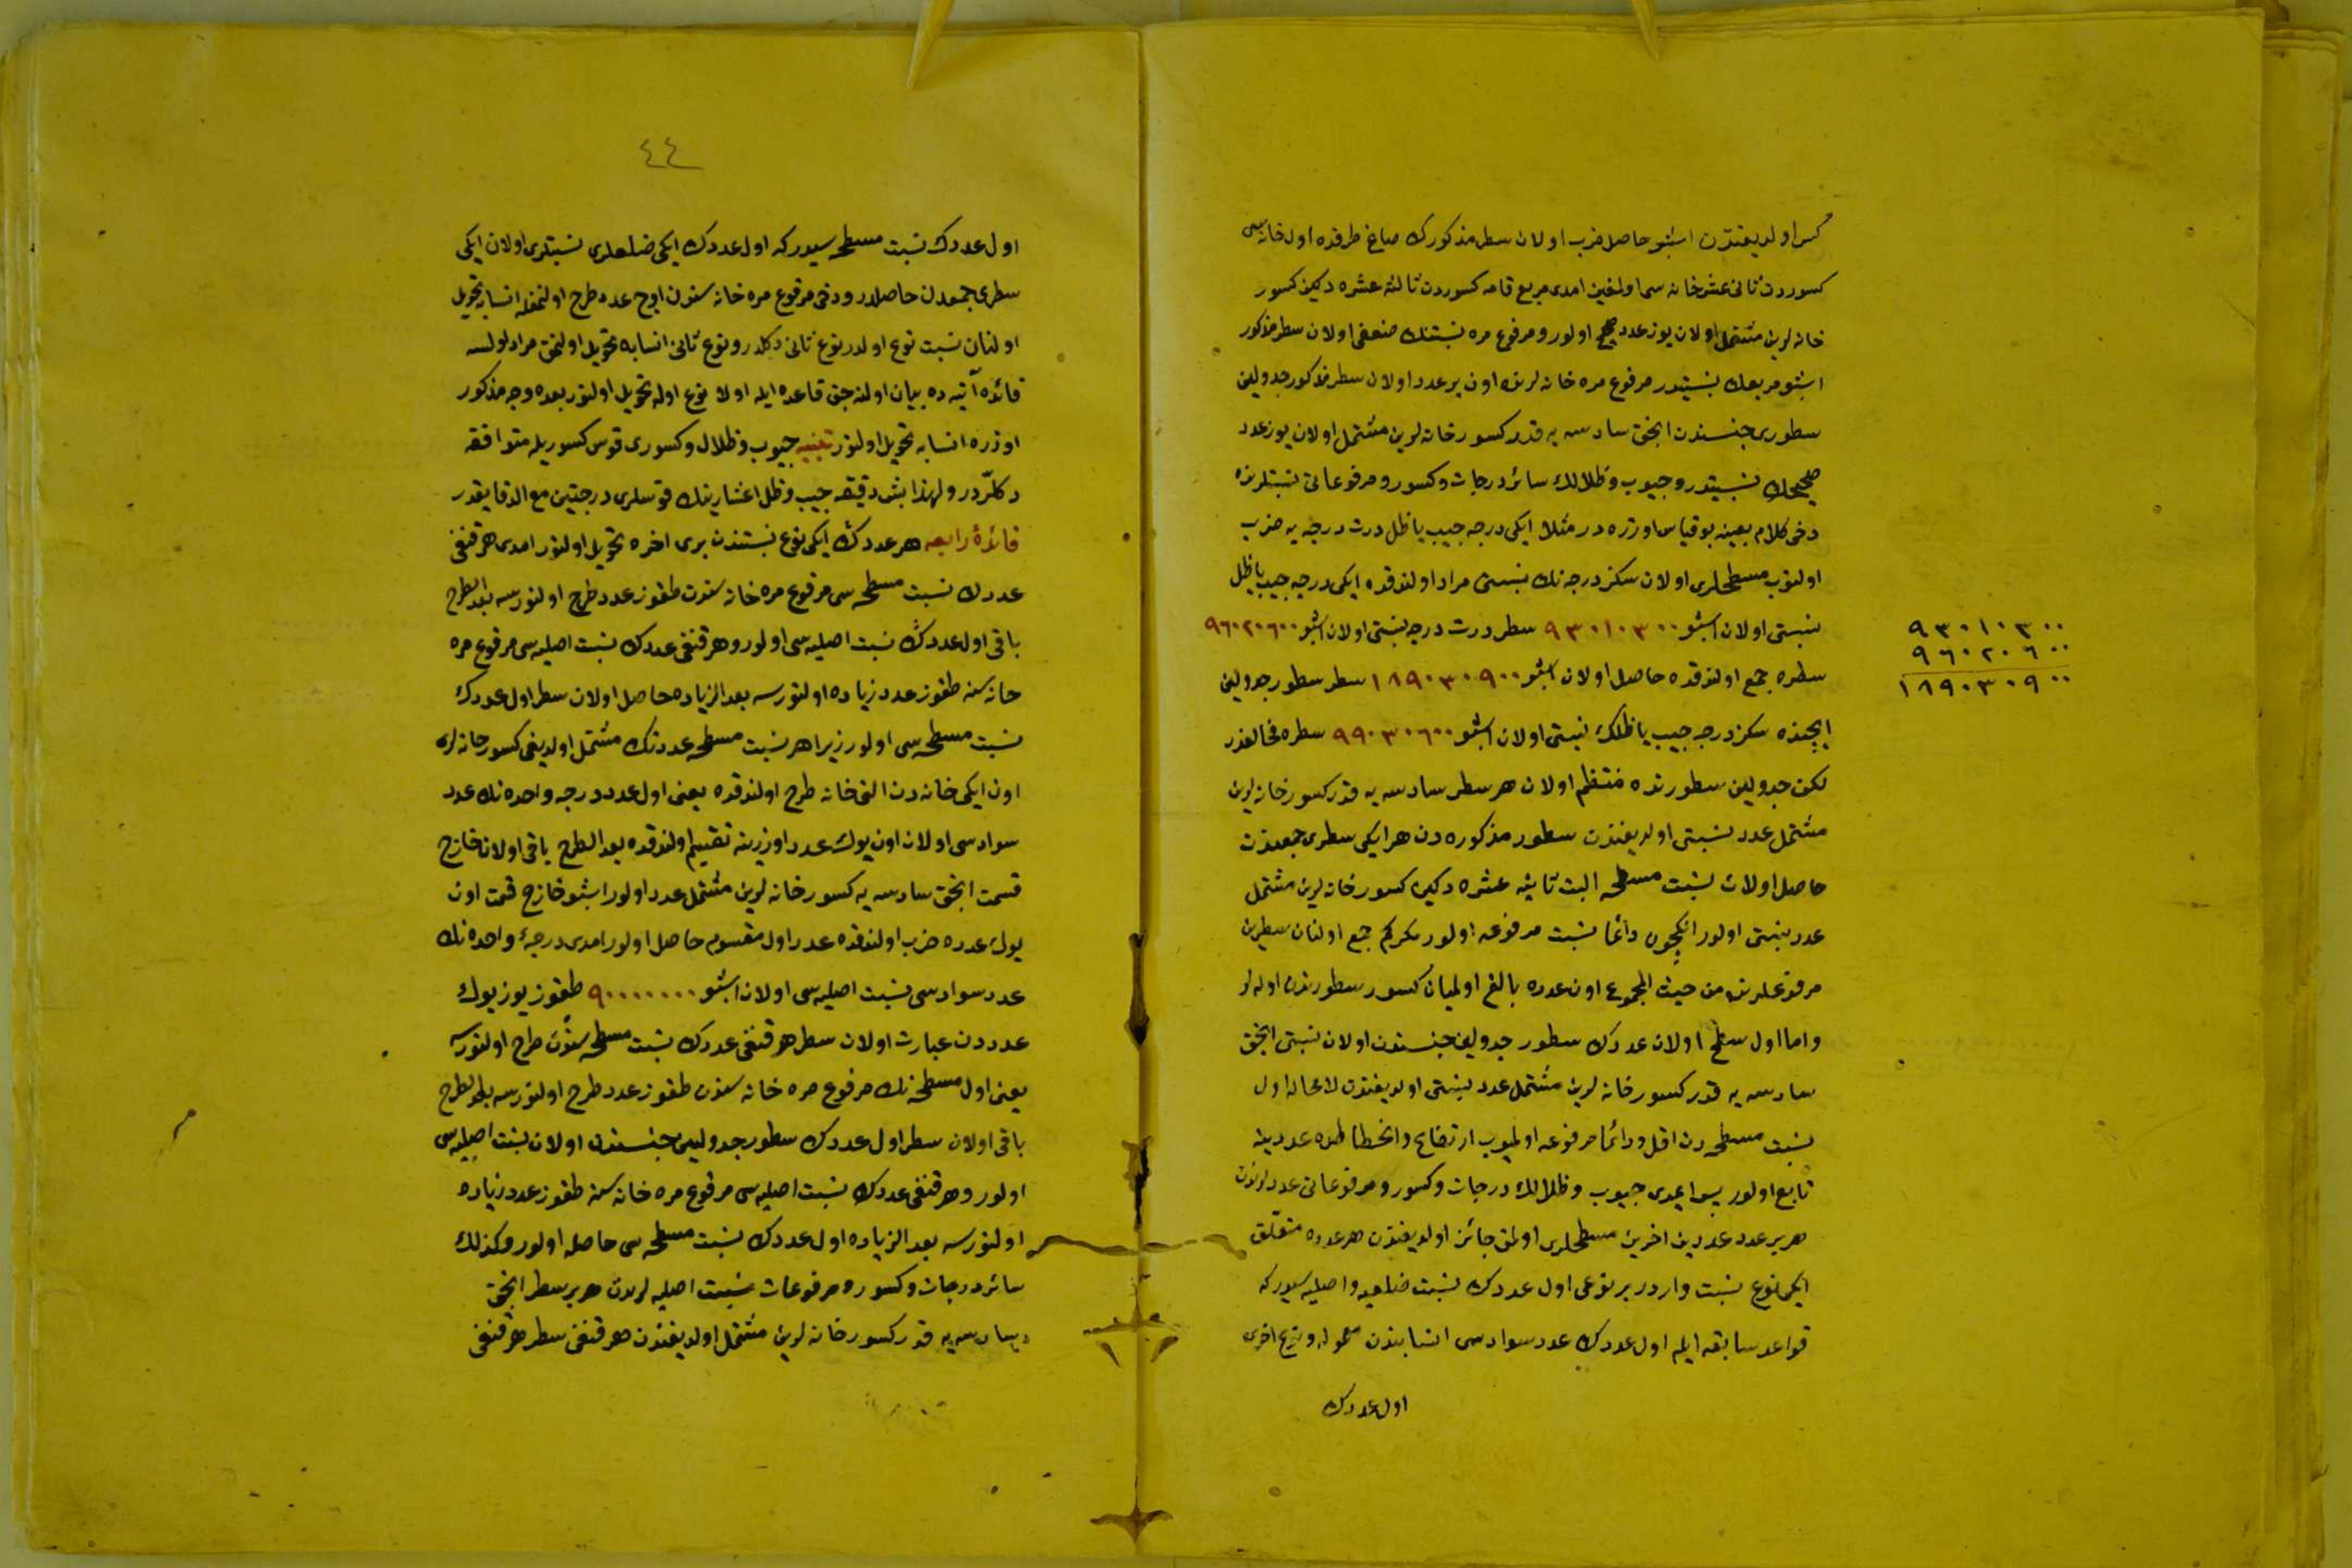 كسر اولديغندن اشبو حاصل ضرب اولان سطر مذكورك صاغ طرفنده اول خانه سى
كسوردن ثانى عشر خانه سى اولغين امدى مربع قامه كسوردن ثالثه عشره دكين كسور
خانه لرين مشتمل اولان يوز عدد صحيح اولور و مرفوع مره نسبتنك ضعفى اولان سطر مذكور
اشبو مربعك نسبتيدر مرفوع مره خانه لرنده اون بر عدد اولان سطر مذكور جدولين
سطورى جنسندن انجق سادسه يه قدر كسور خانه لرين مشتمل اولان يوز عدد
صحيحك نسبتيدر و جيوب و ظلالك سائر درجات و كسور و مرفوعاتى نسبتلرنده
دخى كلام بعينه بو قياس اوزره در مثلا ايكى درجه جيب يا ظل درت درجه يه ضرب
اولنوب مسطحلرى اولان سكز درجه نك نسبتى مراد اولندقده ايكى درجه جيب يا ظل
نسبتى اولان اشبو ٩٣٠١٠٣٠٠ سطر درت درجه نسبتى اولان اشبو ٩٦٠٢٠٦٠٠
سطره جمع اولندقده حاصل اولان اشبو ١٨٩٠٣٠٩٠٠ سطر سطور جدولين
ايچنده سكز درجه جيب يا ظلك نسبتى اولان اشبو ٩٩٠٣٠٦٠٠ سطره مخالفدر
لكن جدولين سطورنده منتظم اولان هر سطر سادسه يه قدر كسور خانه لرين
مشتمل عدد نسبتى اولديغندن سطور مذكوره دن هر ايكى سطرى جمعندن
حاصل اولان نسبت مسطحه البت ثانيه عشره دكين كسور خانه لرين مشتمل
عدد نسبتى اولور انكچون دائما نسبت مرفوعه اولور مكر كم جمع اولنان سطرين
مرفوعلرنده من حيث المجموع اون عدده بالغ اولميان كسور سطورندن اوله لر
و اما اول سطح اولان عددك سطور جدولين جنسندن اولان نسبتى انجق
سادسه يه قدر كسور خانه لرين مشتمل عدد نسبتى اولديغندن لامحاله اول
نسبت مسطحه دن اقل و دائما مرفوعه اولميوب ارتفاع و انخطاطده عددينه
تابع اولور پس ايمدى جيوب و ظلالك درجات و كسور و مرفوعاتى عددلرندن
هر بر عدد عددين اخرين مسطحلرى اولمق جائز اولديغندن هر عدده متعلق
ايكى نوع نسبت واردر بر نوعى اول عددك نسبت ضلعيه و اصليه سيدر كه
قواعد سابقه ايله اول عددك عدد سوادسى انسابندن معموله و نوع اخرى
اول عددك
٩٣٠١٠٣٠٠
٩٦٠٢٠٦٠٠
١٨٩٠٣٠٩٠٠
٤٤
اول عددك نسبت مسطحه سيدر كه اول عددك ايكى ضلعلرى نسبتلرى اولان ايكى
سطرى جمعدن حاصلدر و دخى مرفوع مره خانه سندن اوچ عدد طرح اولنمغله انسابه تحويل
اولنان نسبت نوع اولدر نوع ثانى دكلدر و نوع ثانى انسابه تحويل اولنمق مراد اولسه
فائده آتيه ده بيان اولنه جق قاعده ايله اولا نوع اوله تحويل اولنور بعده وجه مذكور
اوزره انسابه تحويل اولنور تنبيه جيوب و ظلال و كسورى قوس كسوريله متوافقه
دكلّردر و لهذا بش دقيقه جيب و ظل اعشارينك قوسلرى درجتين مع الدقايقدر
فائدۀ رابعه هر عددك ايكى نوع نسبتندن برى اخره تحويل اولنور امدى هر قنغى
عددك نسبت مسطحه سى مرفوع مره خانه سندن طقوز عدد طرح اولنورسه بعد الطرح
باقى اول عددك نسبت اصليه سى اولور و هر قنغى عددك نسبت اصليه سى مرفوع مره
خانه سنه طقوز عدد زياده اولنورسه بعد الزياده حاصل اولان سطر اول عددك
نسبت مسطحه سى اولور زيرا هر نسبت مسطحه عددنك مشتمل اولديغى كسور خانه لرى
اون ايكى خانه دن التى خانه طرح اولندقده يعنى اول عدد درجه واحده نك عدد
سوادسى اولان اون يوك عدد اوزرينه تقسيم اولندقده بعد الطرح باقى اولان خارج
قسمت انجق سادسه يه كسور خانه لرين مشتمل عدد اولور اشبو خارج قسمت اون
يوك عدده ضرب اولندقده عدد اول مقسوم حاصل اولور امدى درجۀ واحده نك
عدد سوادسى نسبت اصليه سى اولان اشبو ٩٠٠٠٠٠٠٠ طقوز يوز يوك
عدددن عبارت اولان سطر هر قنغى عددك نسبت مسطحه سندن طرح اولنورسه
يعنى اول مسطحه نك مرفوع مره خانه سندن طقوز عدد طرح اولنورسه بعد الطرح
باقى اولان سطر اول عددك سطور جدولين جنسندن اولان نسبت اصليه سى
اولور و هر قنغى عددك نسبت اصليه سى مرفوع مره خانه سنه طقوز عدد زياده
اولنورسه بعد الزياده اول عددك نسبت مسطحه سى حاصله اولور و كذلك
سائر درجات و كسور و مرفوعات نسبت اصليه لرندن هر بر سطر انجق
سادسه يه قدر كسور خانه لرين مشتمل اولديغندن هر قنغى سطر هر قنغى